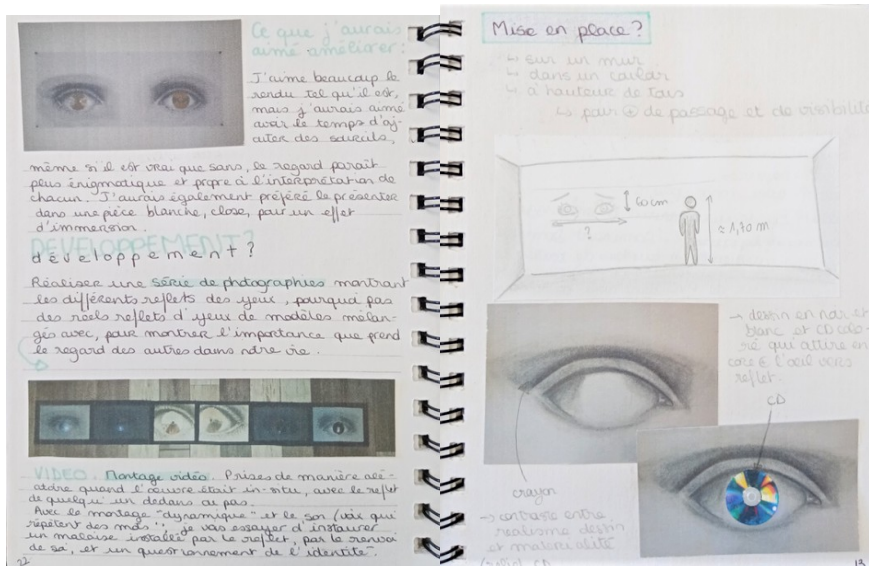 Ce que j'aurais
aimé améliorer:
J'aime beaucoup le
rendu tel qu'il est,
mais j'aurais aimé
avoir le temps d'aj-
outer des sourcils,
même si il est vrai que sans, le regard paraît
plus énigmatique et propre à l'interprétation de
chacun. J'aurais également préféré le présenter
dans une pièce blanche, close, pour un effet
d'immersion.
DEVELOPPEMENT?
développement?
Réaliser une série de photographies montrant
les différents reflets des yeux, pourquoi pas
des réels reflets d'yeux de modèles mélan-
gés avec, pour montrer l'importance que prend
le regard des autres dans notre vie.
VIDEO. Montage vidéo. Prises de manière alé-
atoire quand l'œuvre était in-situ, avec le reflet
de quelqu'un dedans ou pas.
Avec le montage "dynamique" et le son (voix qui
répètent des mots... je vais essayer d'instaurer
un malaise installé par le reflet, par le renvoi
de soi, et un questionnement de l'identité.
22
Mise en place?
↳ sur un mur
↳ dans un couloir
↳ à hauteur de tous
↳ pour ⊕ de passage et de visibilité
60cm
?
≈ 1,70 m
→ dessin en noir et
blanc et CD colo-
ré qui attire en-
core l'œil vers
reflet.
CD
crayon
→ contraste entre
réalisme dessin
et matérialité
CD
13